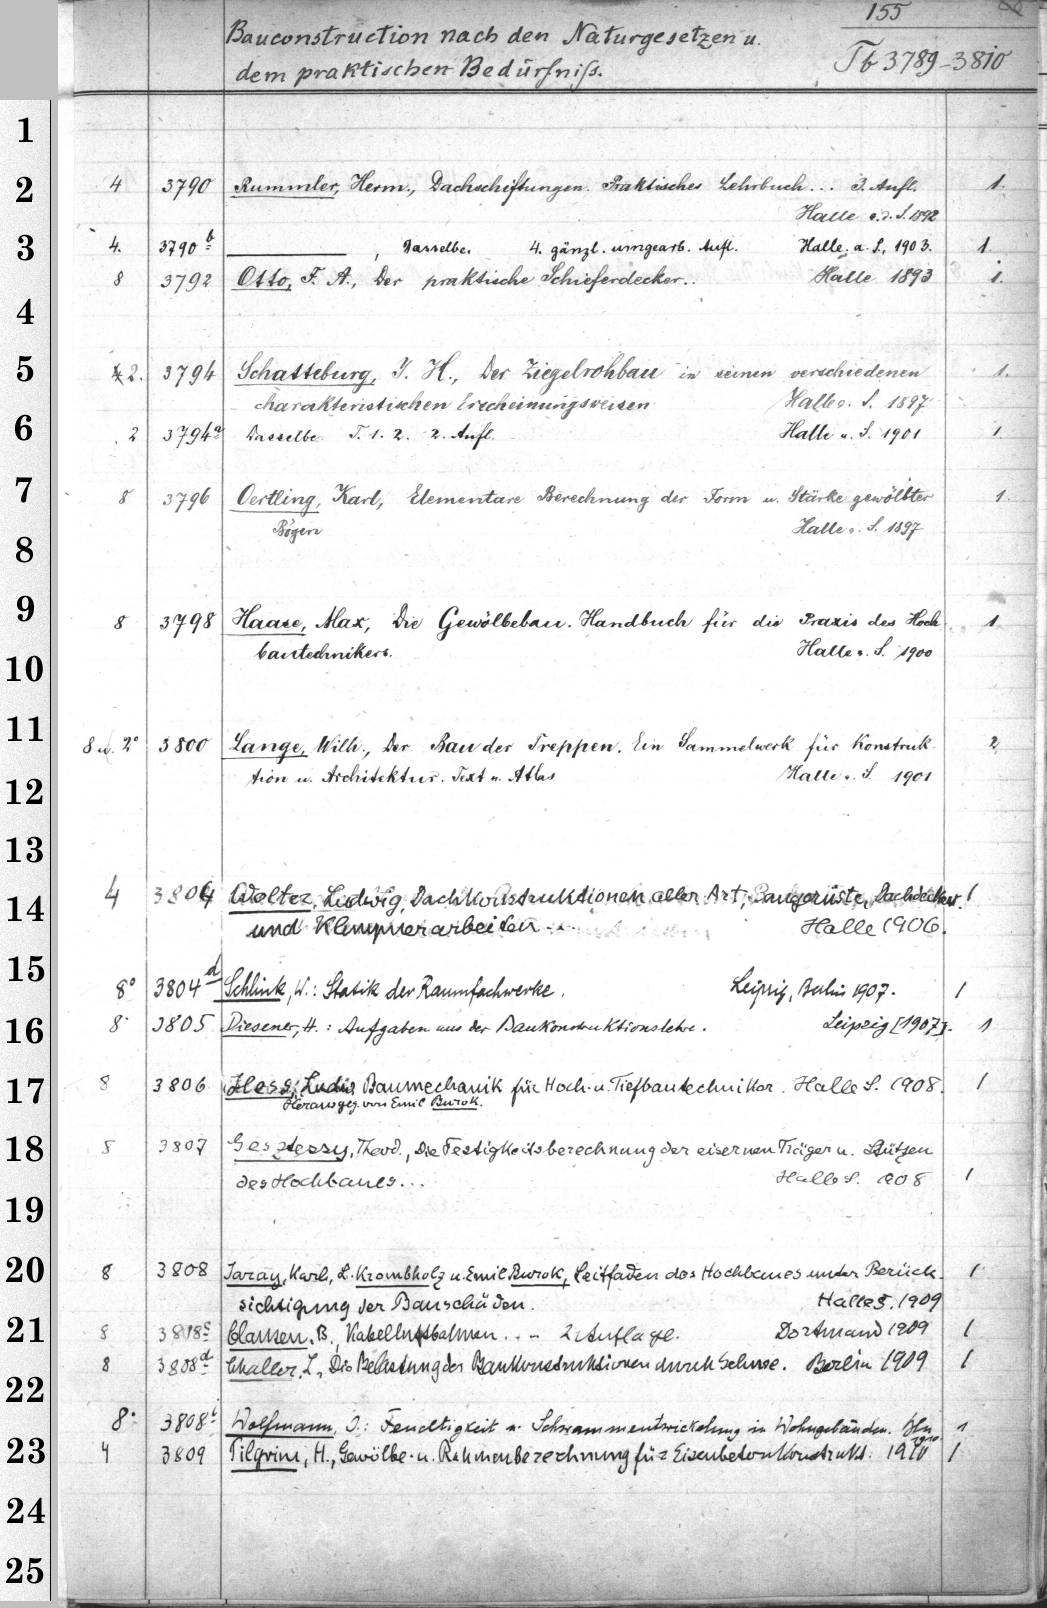 155
Bauconstruction nach den Naturgesetzen u.
dem praktischen Bedürfniß.
Tb 3789-3810
1
2
4 3790 Rummler, Herm., Dachschiftungen. Praktisches Lehrbuch... 3. Aufl. 1.
Halle a. d. S. 1892
3
4. 3790 b , Dasselbe. 4. gänzl. umgearb. Aufl. Halle a. S. 1903. 1.
8 3792 Otto, F. A., Der praktische Schieferdecker.. Halle 1893 1.
4
5
2. 3794 Schatteburg, J. H., Der Ziegelrohbau in seinen verschiedenen 1.
charakteristischen Erscheinungsweisen Halle a. S. 1897
6
2 3794a Dasselbe T. 1. 2. 2. Aufl. Halle a. S. 1901 1
7
8 3796 Oertling, Karl, Elementare Berechnung der Form u. Stärke gewölbter 1.
Bögen Halle a. S. 1897
8
9
8 3798 Haase, Max, Die Gewölbebau. Handbuch für die Praxis des Hoch 1
bautechnikers. Halle a. S. 1900
10
11
8 u. 2° 3800 Lange, Wilh., Der Bau der Treppen. Ein Sammelwerk für Konstruk 2
tion u. Architektur. Text u. Atlas Halle a. S. 1901
12
13
14
4 3804 Wolter, Ludwig, Dachkonstruktionen aller Art, Baugerüste, Dachdecker 1
und Klempnerarbeiten... Halle 1906.
15
8° 3804d Schlink, W.: Statik der Raumfachwerke. Leipzig, Berlin 1907. 1
16
8° 3805 Diesener, H.: Aufgaben aus der Baukonstruktionslehre. Leipzig [1907]. 1
17
8 3806 Baumechanik für Hoch- u. Tiefbautechniker. Halle S. 1908. 1
Herausgeg. von Emil Burok.
18
8 3807 Gesztessy, Theod., Die Festigkeitsberechnung der eisernen Träger u. Stützen
des Hochbaues... Halle S. 1908 1
19
20
8 3808 Jaray, Karl, L. Krombholz u. Emil Burok, Leitfaden des Hochbaues unter Berück- 1
sichtigung der Bauschäden. Halle S. 1909
21
8 3808c Clausen, B., Kabelluftbahnen... 2. Auflage. Dortmund 1909 1
8 3808d L., Die Belastung der Baukonstruktionen durch Schnee. Berlin 1909 1
22
8° 3808 Wolfmann, J.: Feuchtigkeit u. Schwammentwickelung in Wohngebäuden. Bln 1910 1
23
4 3809 Pilgrim, H., Gewölbe- u. Rahmenberechnung für Eisenbetonkonstrukt. 1910 1
24
25